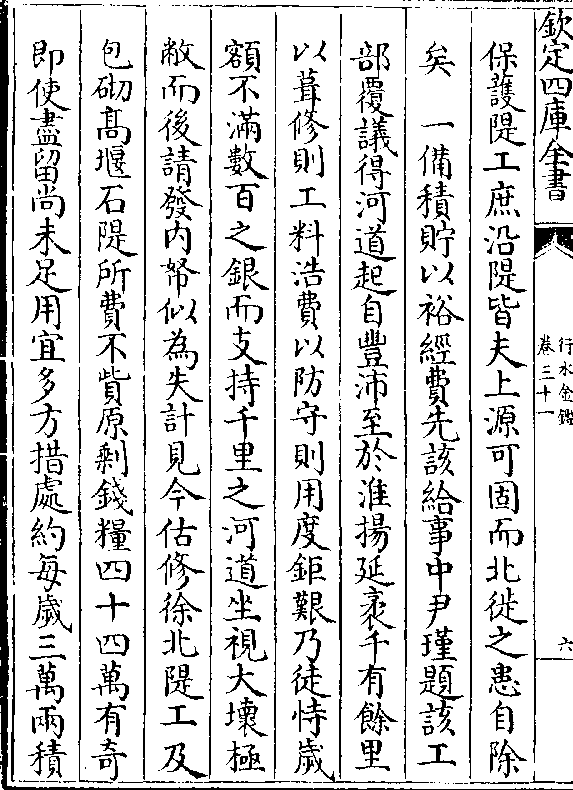 欽定四庫全書
行水金鑑
卷三十一
六
保護隄工庶沿隄皆夫上源可固而北徙之患自除
矣　一備積貯以裕經費先該給事中尹瑾題該工
部覆議得河道起自豐沛至於淮揚延袤千有餘里
以葺修則工料浩費以防守則用度鉅艱乃徒恃歲
額不滿數百之銀而支持千里之河道坐視大壞極
敝而後請發內帑似為失計見今估修徐北隄工及
包砌高堰石隄所費不貲原剩錢糧四十四萬有奇
即使盡留尚未足用宜多方措處約每歲三萬兩積